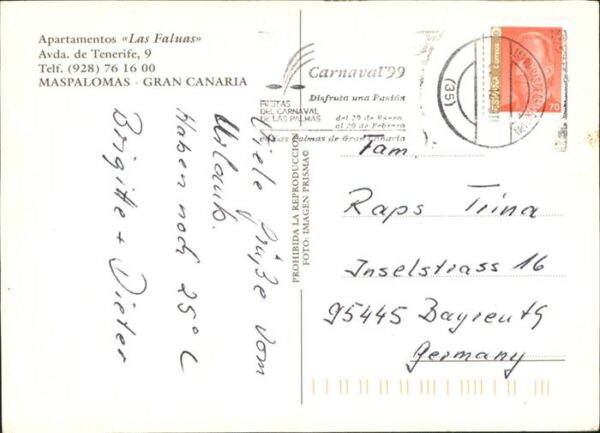 Apartamentos «Las Faluas»
Avda. de Tenerife, 9
Telf. (928) 76 16 00
MASPALOMAS - GRAN CANARIA
Viele Grüße vom
Urlaub.
Haben noch 25°C
Brigitte + Dieter
PROHIBIDA LA REPRODUCCION
FOTO: IMAGEN PRISMA©
Carnaval'99
Disfruta una Pasión
FIESTAS
DEL CARNAVAL
DE LAS PALMAS
del 29 de Enero
al 20 de Febrero
Las Palmas de Gran Canaria
(35)
ESPAÑA CORREOS
70
Fam.
Raps Trina
Inselstrass 16
95445 Bayreuth
Germany